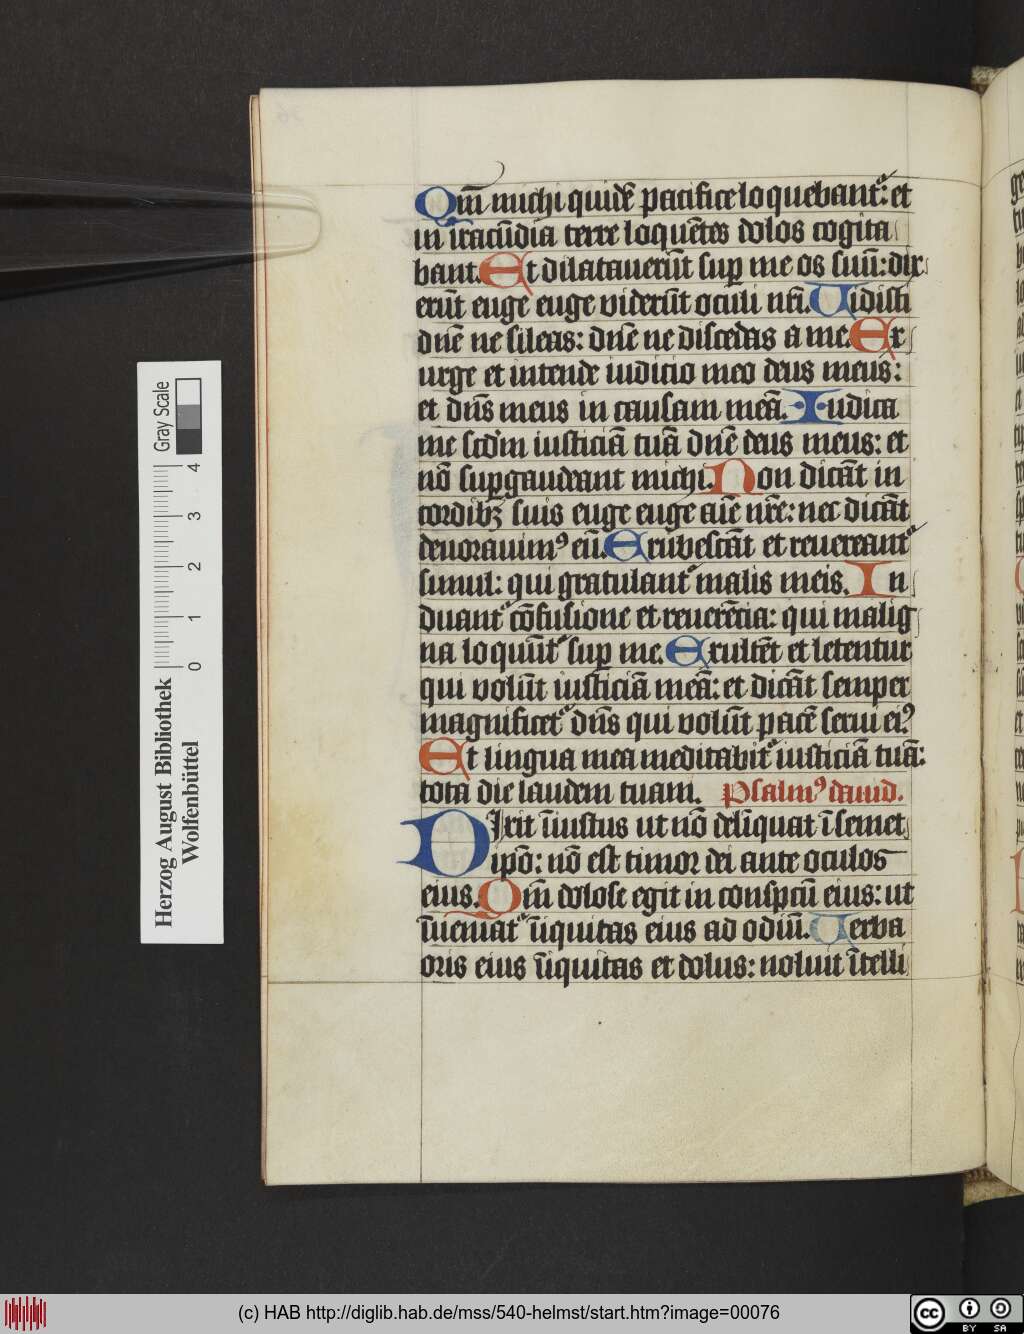 Qm̄ michi quidē pacifice loquebant᷑: et
in iracūdia terre loquētes dolos cogita
bant. Et dilatauerūt sup me os suū: dix
erūt euge euge viderūt oculi nr̄i. Uidisti
dn̄e ne sileas: dn̄e ne discedas a me. Ex
urge et intende iudicio meo deus meus:
et dn̄s meus in causam meā. Iudica
me scd̄m iusticiā tuā dn̄e deus meus: et
nō sup̱gaudeant michi. Non dicāt in
cordibꝫ suis euge euge aīe nr̄e: nec dicāt
deuorauimꝰ eū. Erubescāt et reuereant᷑
simul: qui gratulant᷑ malis meis. In
duant᷑ cōfusione et reuerētia: qui malig
na loquūt᷑ sup me. Exultēt et letentur
qui volūt iusticiā meā: et dicāt semper
magnificet᷑ dn̄s qui volūt pacē serui eiꝰ
Et lingua mea meditabit᷑ iusticiā tuā:
tota die laudem tuam. Psalmꝰ dauid.
Dixit īiustus ut nō delīquat ī semet
ip̄o: nō est timor dei ante oculos
eius. Qm̄ dolose egit in consp̱ctu eius: ut
īueniat᷑ īiquitas eius ad odiū. Uerba
oris eius īiquitas et dolus: noluit ītelli
Herzog August Bibliothek
Wolfenbüttel
0 1 2 3 4
Gray Scale
(c) HAB http://diglib.hab.de/mss/540-helmst/start.htm?image=00076
cc BY SA